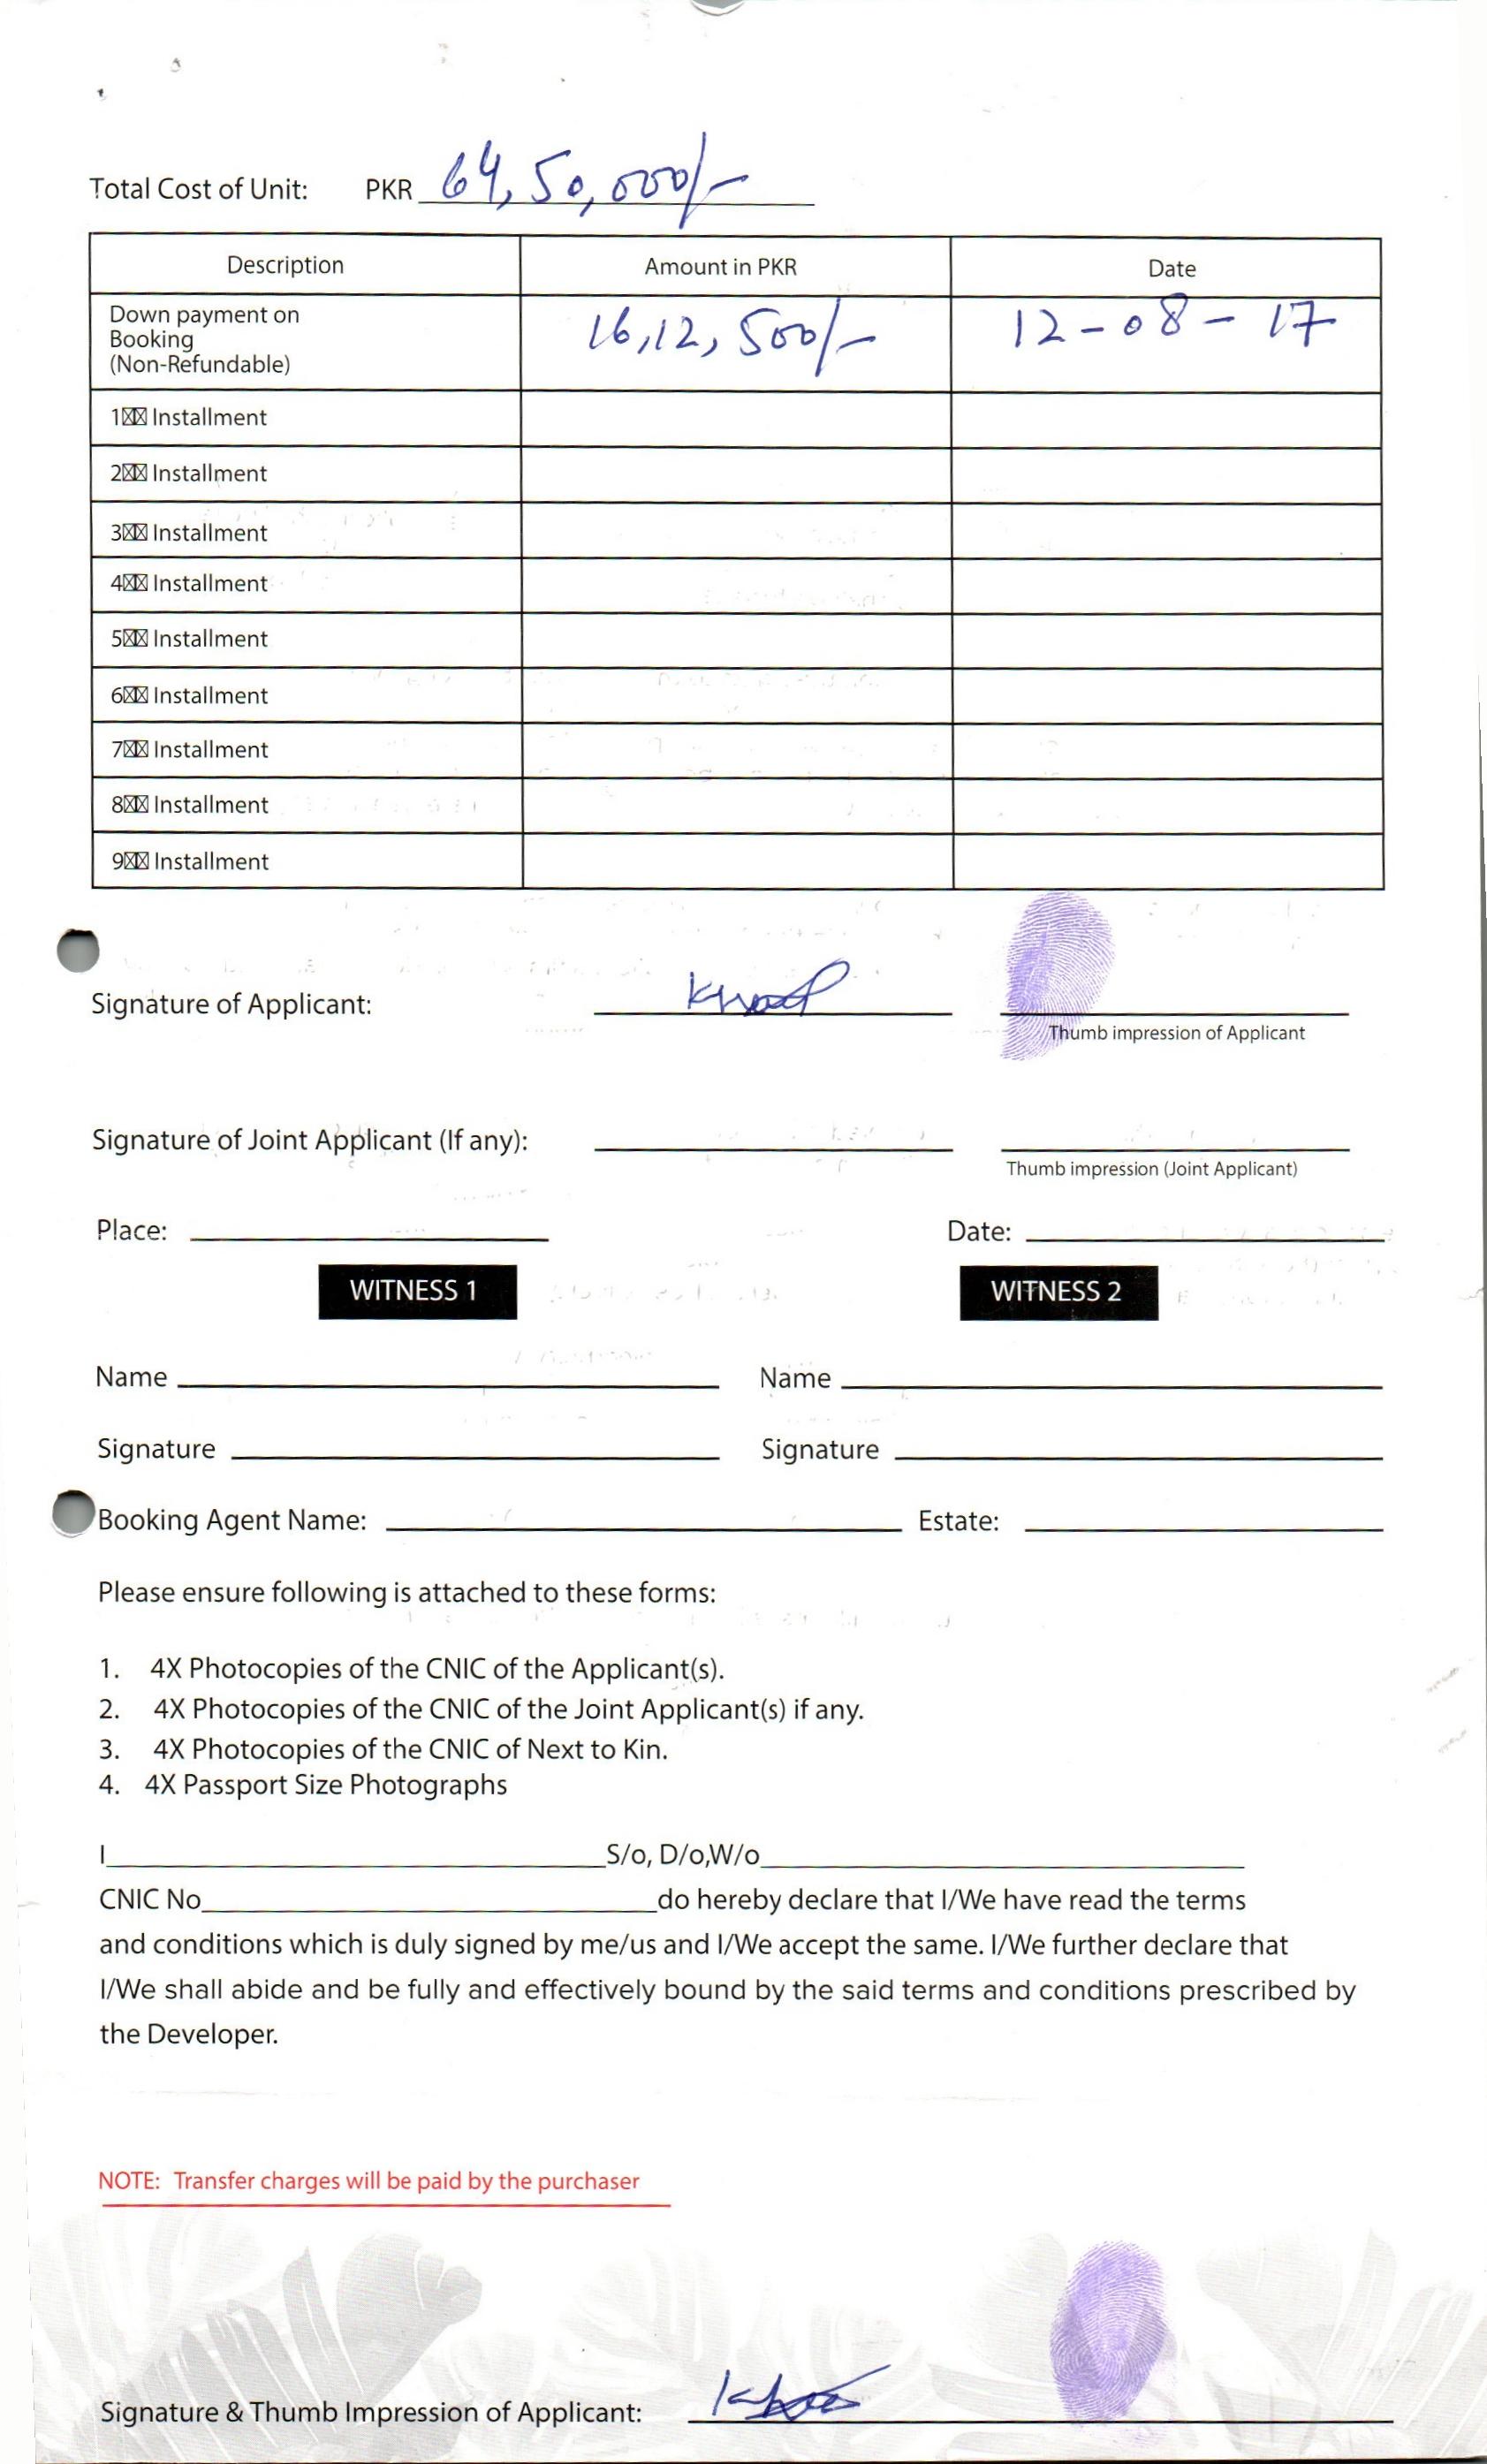 Total Cost of Unit: PKR 64,50,000/-
Description Amount in PKR Date
Down payment on
Booking
(Non-Refundable) 16,12,500/- 12-08-17
1 Installment
2 Installment
3 Installment
4 Installment
5 Installment
6 Installment
7 Installment
8 Installment
9 Installment
Signature of Applicant:
Thumb impression of Applicant
Signature of Joint Applicant (If any):
Thumb impression (Joint Applicant)
Place: Date:
WITNESS 1 WITNESS 2
Name Name
Signature Signature
Booking Agent Name: Estate:
Please ensure following is attached to these forms:
1. 4X Photocopies of the CNIC of the Applicant(s).
2. 4X Photocopies of the CNIC of the Joint Applicant(s) if any.
3. 4X Photocopies of the CNIC of Next to Kin.
4. 4X Passport Size Photographs
I S/o, D/o,W/o
CNIC No do hereby declare that I/We have read the terms
and conditions which is duly signed by me/us and I/We accept the same. I/We further declare that
I/We shall abide and be fully and effectively bound by the said terms and conditions prescribed by
the Developer.
NOTE: Transfer charges will be paid by the purchaser
Signature & Thumb Impression of Applicant: